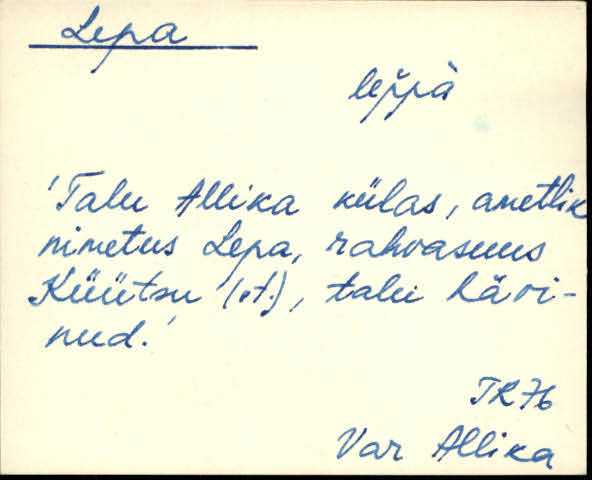 Lepa
lep̆p̆ä
'Talu Allika külas, ametlik
nimetus Lepa, rahvasuus
Küütsu (vt.), talu hävi-
nud.'
TR76
Var Allika